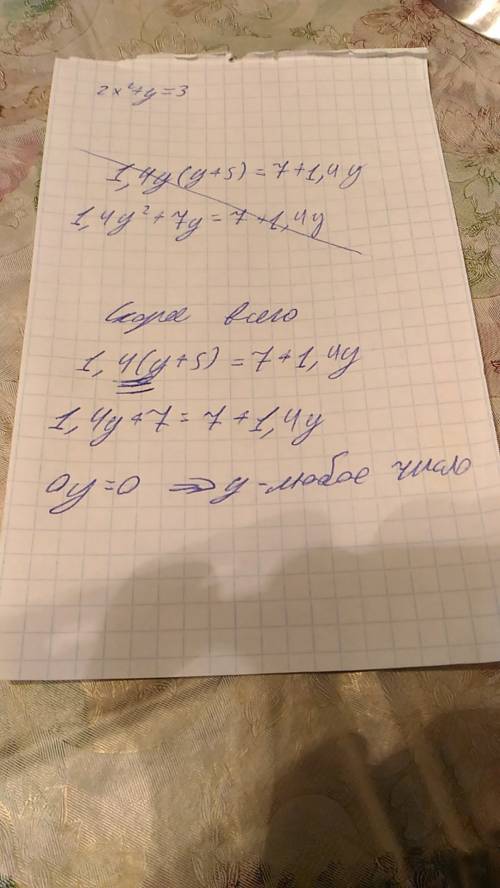 2x²+y=3
1,4y(y+5)=7+1,4y
1,4y²+7y=7+1,4y
Скорее всего
1,4(y+5)=7+1,4y
1,4y+7=7+1,4y
0y=0 => y-любое число